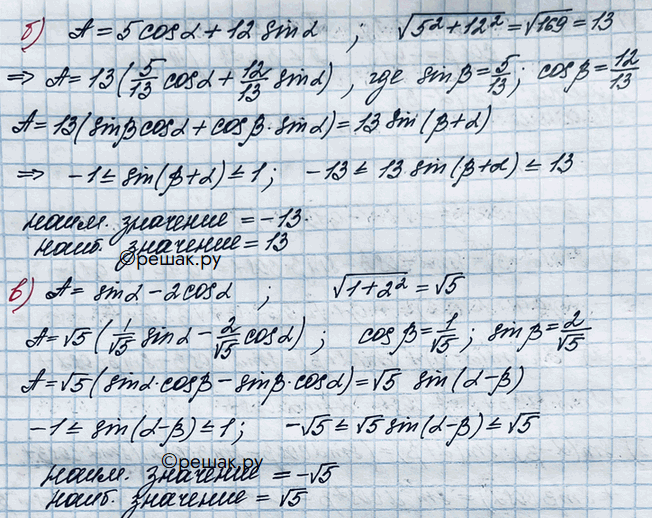 б) A = 5 cosα + 12 sinα ; √(5² + 12²) = √169 = 13
⇒ A = 13 (5/13 cosα + 12/13 sinα), где sinβ = 5/13 ; cosβ = 12/13
A = 13 (sinβ cosα + cosβ · sinα) = 13 sin(β + α)
⇒ -1 ≤ sin(β + α) ≤ 1 ; -13 ≤ 13 sin(β + α) ≤ 13
наим. значение = -13
наиб. значение = 13
©решак.ру
в) A = sinα - 2cosα ; √(1 + 2²) = √5
A = √5 (1/√5 sinα - 2/√5 cosα) ; cosβ = 1/√5 ; sinβ = 2/√5
A = √5 (sinα · cosβ - sinβ · cosα) = √5 sin(α - β)
-1 ≤ sin(α - β) ≤ 1 ; -√5 ≤ √5 sin(α - β) ≤ √5
©решак.ру
наим. значение = -√5
наиб. значение = √5